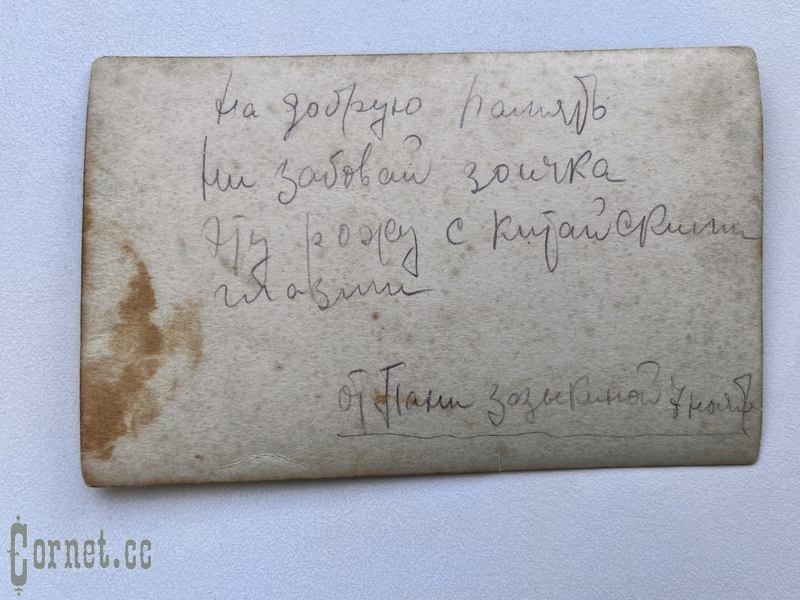 На добрую память
Ни забовай зоичка
эту рожу с китайскими
глазми
от Пани зазыкиной 7 нояб
Cornet.cc